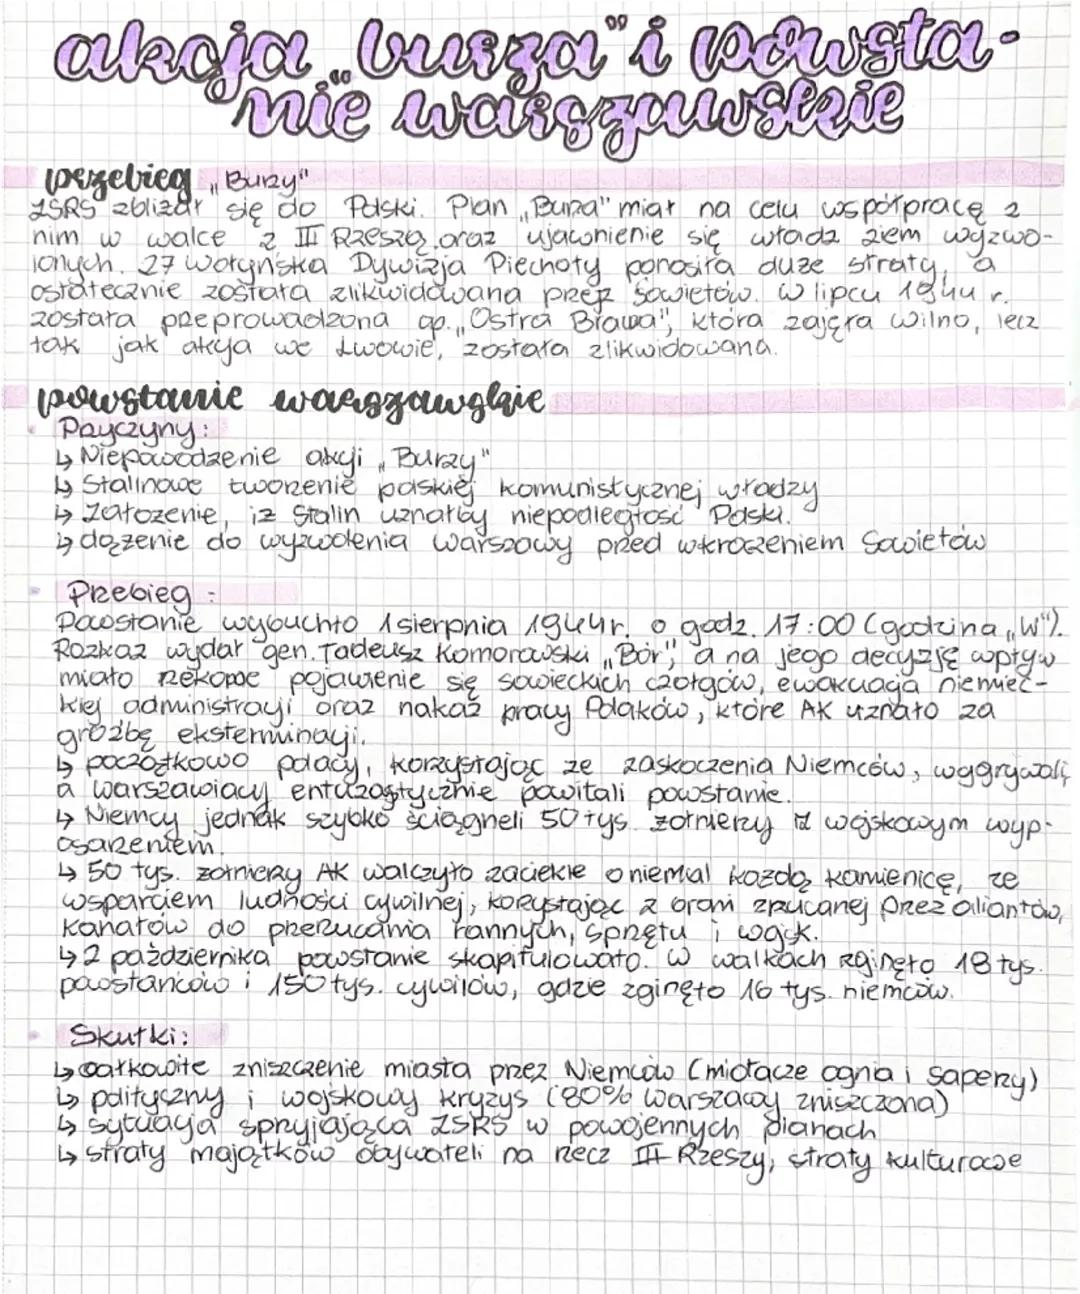 akcja „burza" i powsta-
nie warszawskie
przebieg „Burzy"
ZSRS zbliżał się do Polski. Plan „Burza" miał na celu współpracę z
nim w walce z III Rzeszą oraz ujawnienie się władz ziem wyzwo-
lonych. 27 Wołyńska Dywizja Piechoty ponosiła duże straty, a
ostatecznie została zlikwidowana przez Sowietów. W lipcu 1944 r.
została przeprowadzona op. „Ostra Brama", która zajęła Wilno, lecz
tak jak akcja we Lwowie, została zlikwidowana.
powstanie warszawskie
Przyczyny:
↳ Niepowodzenie akcji „Burzy"
↳ Stalinowe tworzenie polskiej komunistycznej władzy
↳ Założenie, iż Stalin uznałby niepodległość Polski.
↳ dążenie do wyzwolenia Warszawy przed wkroczeniem Sowietów
Przebieg:
Powstanie wybuchło 1 sierpnia 1944r. o godz. 17:00 (godzina „W").
Rozkaz wydał gen. Tadeusz Komorowski „Bór", a na jego decyzję wpływ
miało rzekome pojawienie się sowieckich czołgów, ewakuacja niemiec-
kiej administracji oraz nakaz pracy Polaków, które AK uznało za
groźbę eksterminacji.
↳ początkowo polacy, korzystając ze zaskoczenia Niemców, wygrywali,
a warszawiacy entuzastycznie powitali powstanie.
↳ Niemcy jednak szybko ściągneli 50 tys. żołnierzy z wojskowym wyp-
osażeniem.
↳ 50 tys. żołnierzy AK walczyło zaciekle o niemal każdą kamienicę, ze
wsparciem ludności cywilnej, korzystając z broni zrzucanej przez aliantów,
kanałów do przerzucania rannych, sprzętu i wojsk.
↳ 2 października powstanie skapitulowało. W walkach zginęło 18 tys.
powstańców i 150 tys. cywilów, gdzie zginęło 16 tys. niemców.
Skutki:
↳ całkowite zniszczenie miasta przez Niemców (miotacze ognia i saperzy)
↳ polityczny i wojskowy kryzys (80% Warszawy zniszczona)
↳ sytuacja sprzyjająca ZSRS w powojennych planach
↳ straty majątków obywateli na rzecz III Rzeszy, straty kulturowe